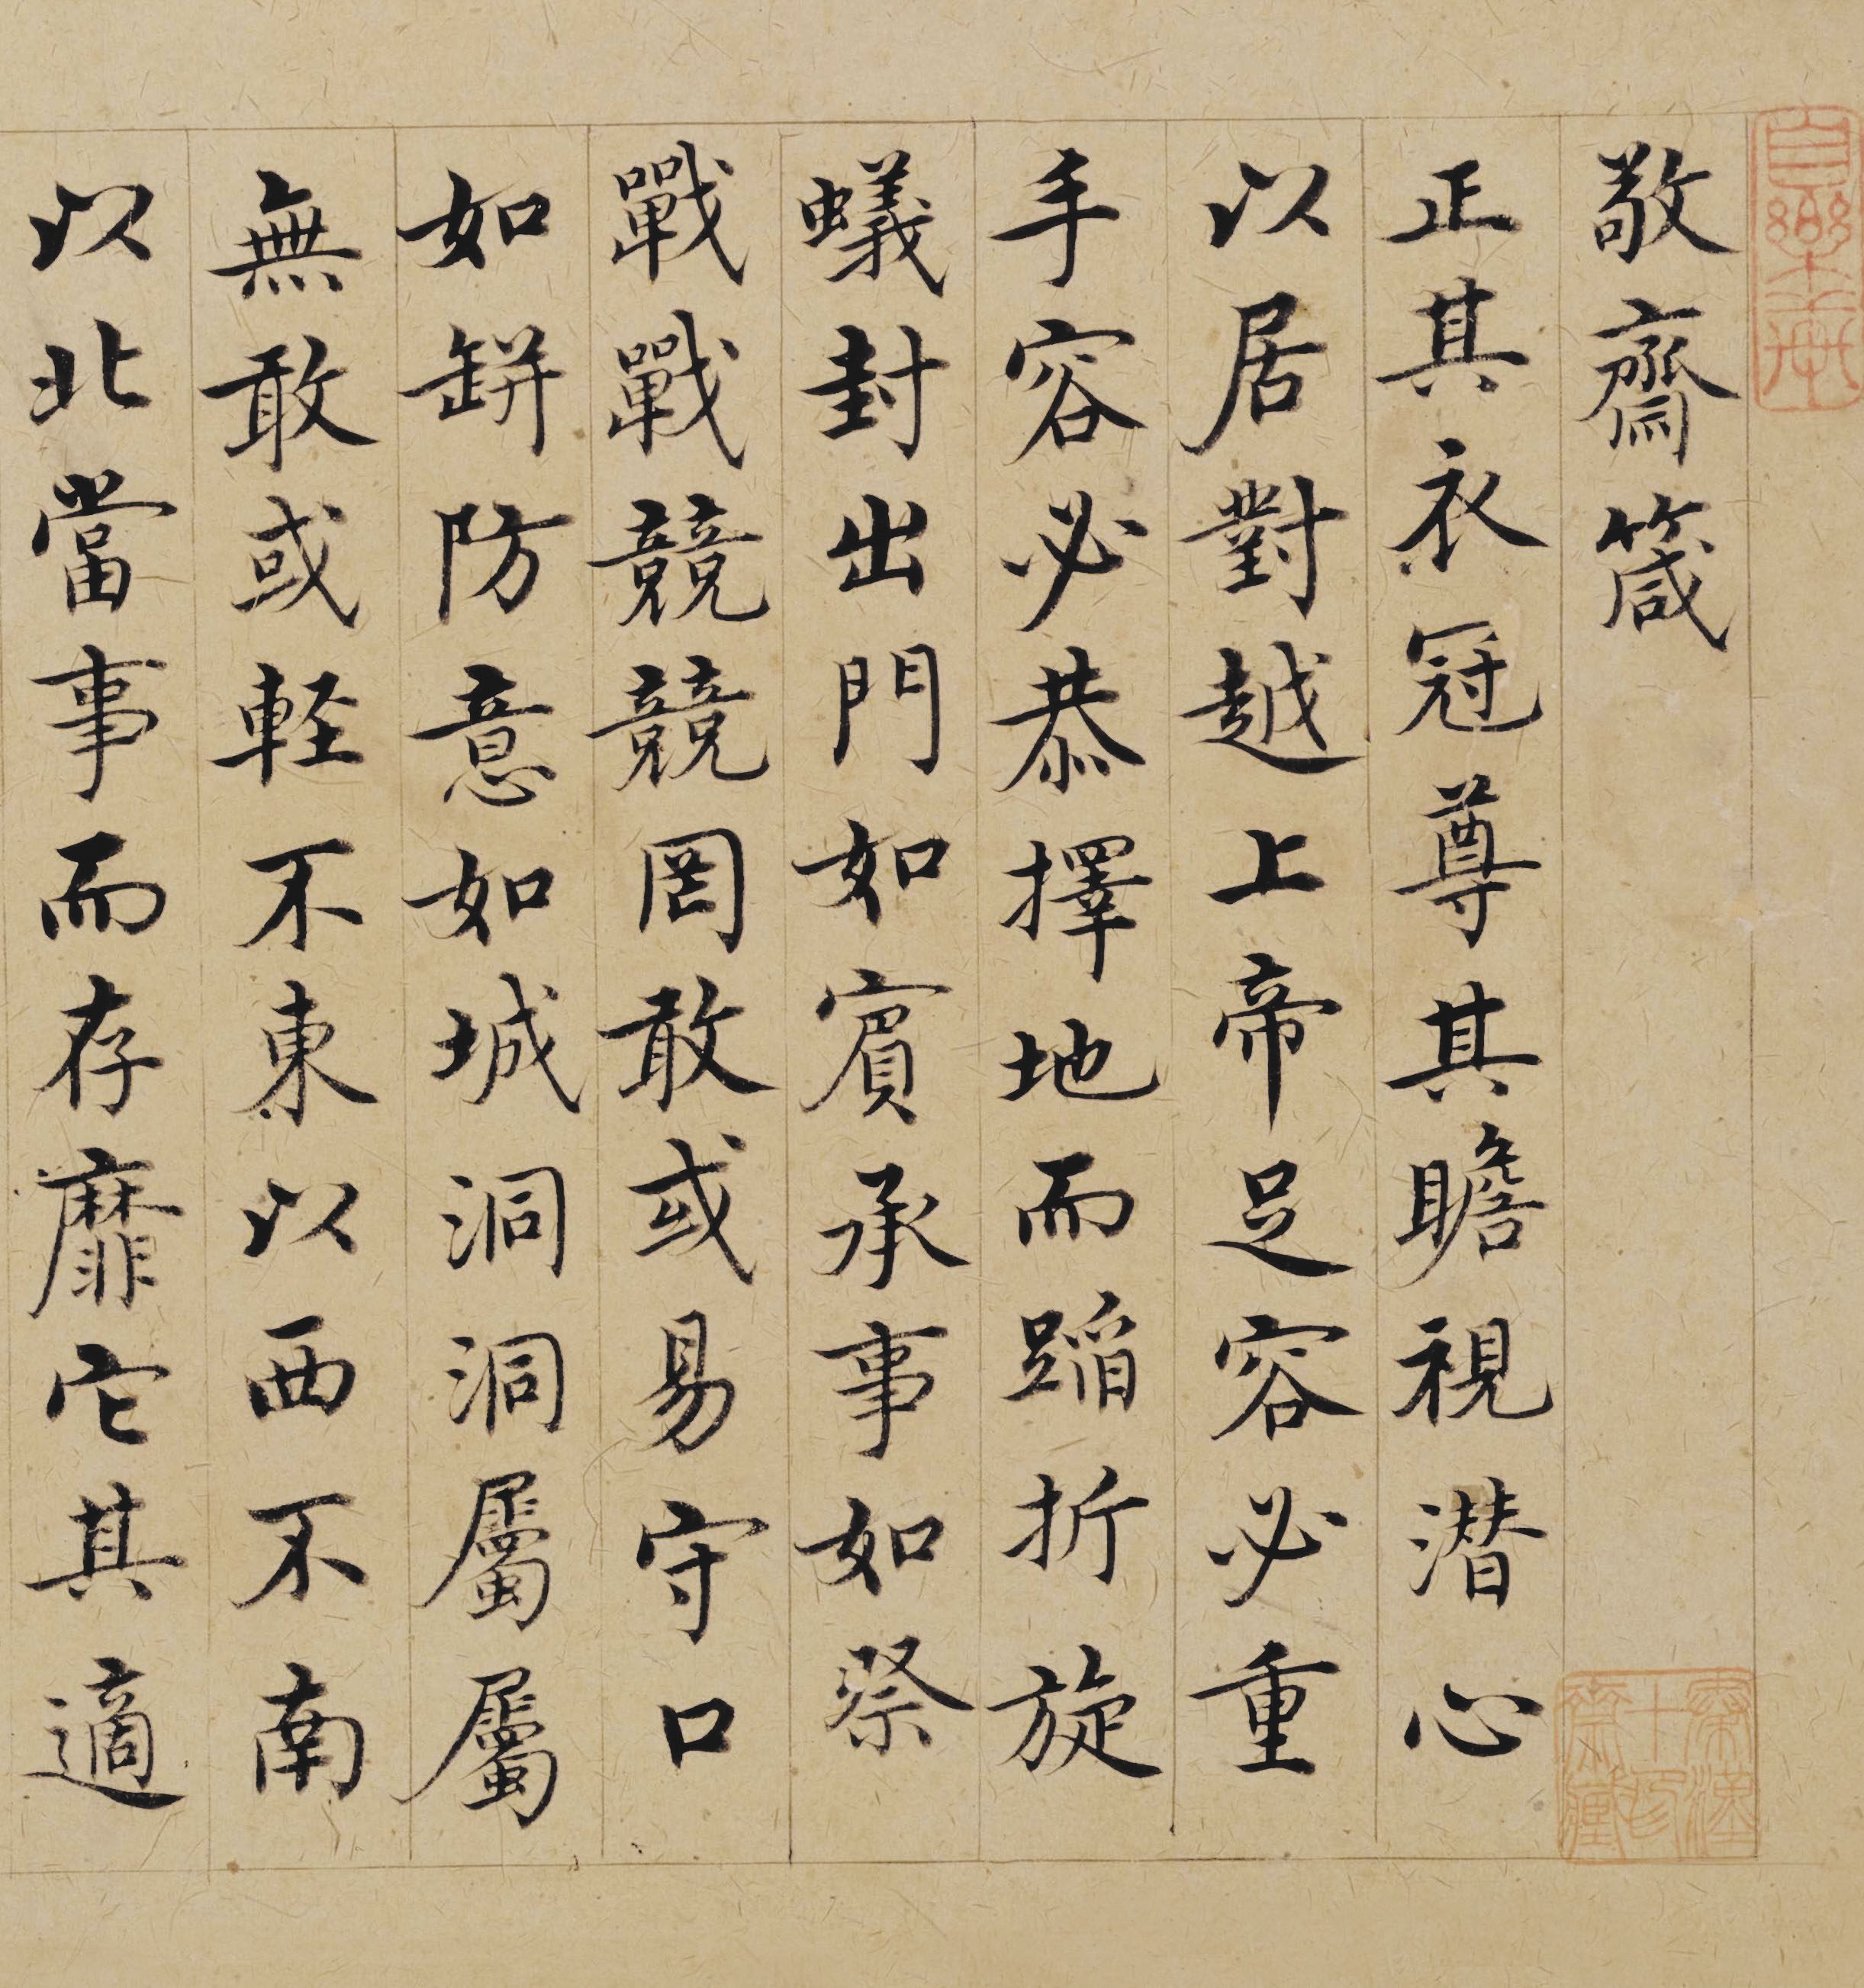 敬齋箴
正其衣冠尊其瞻視潜心
以居對越上帝足容必重
手容必恭擇地而蹈折旋
蟻封出門如賓承事如祭
戰戰競競罔敢或易守口
如缾防意如城洞洞屬屬
無敢或軽不東以西不南
以北當事而存靡它其適